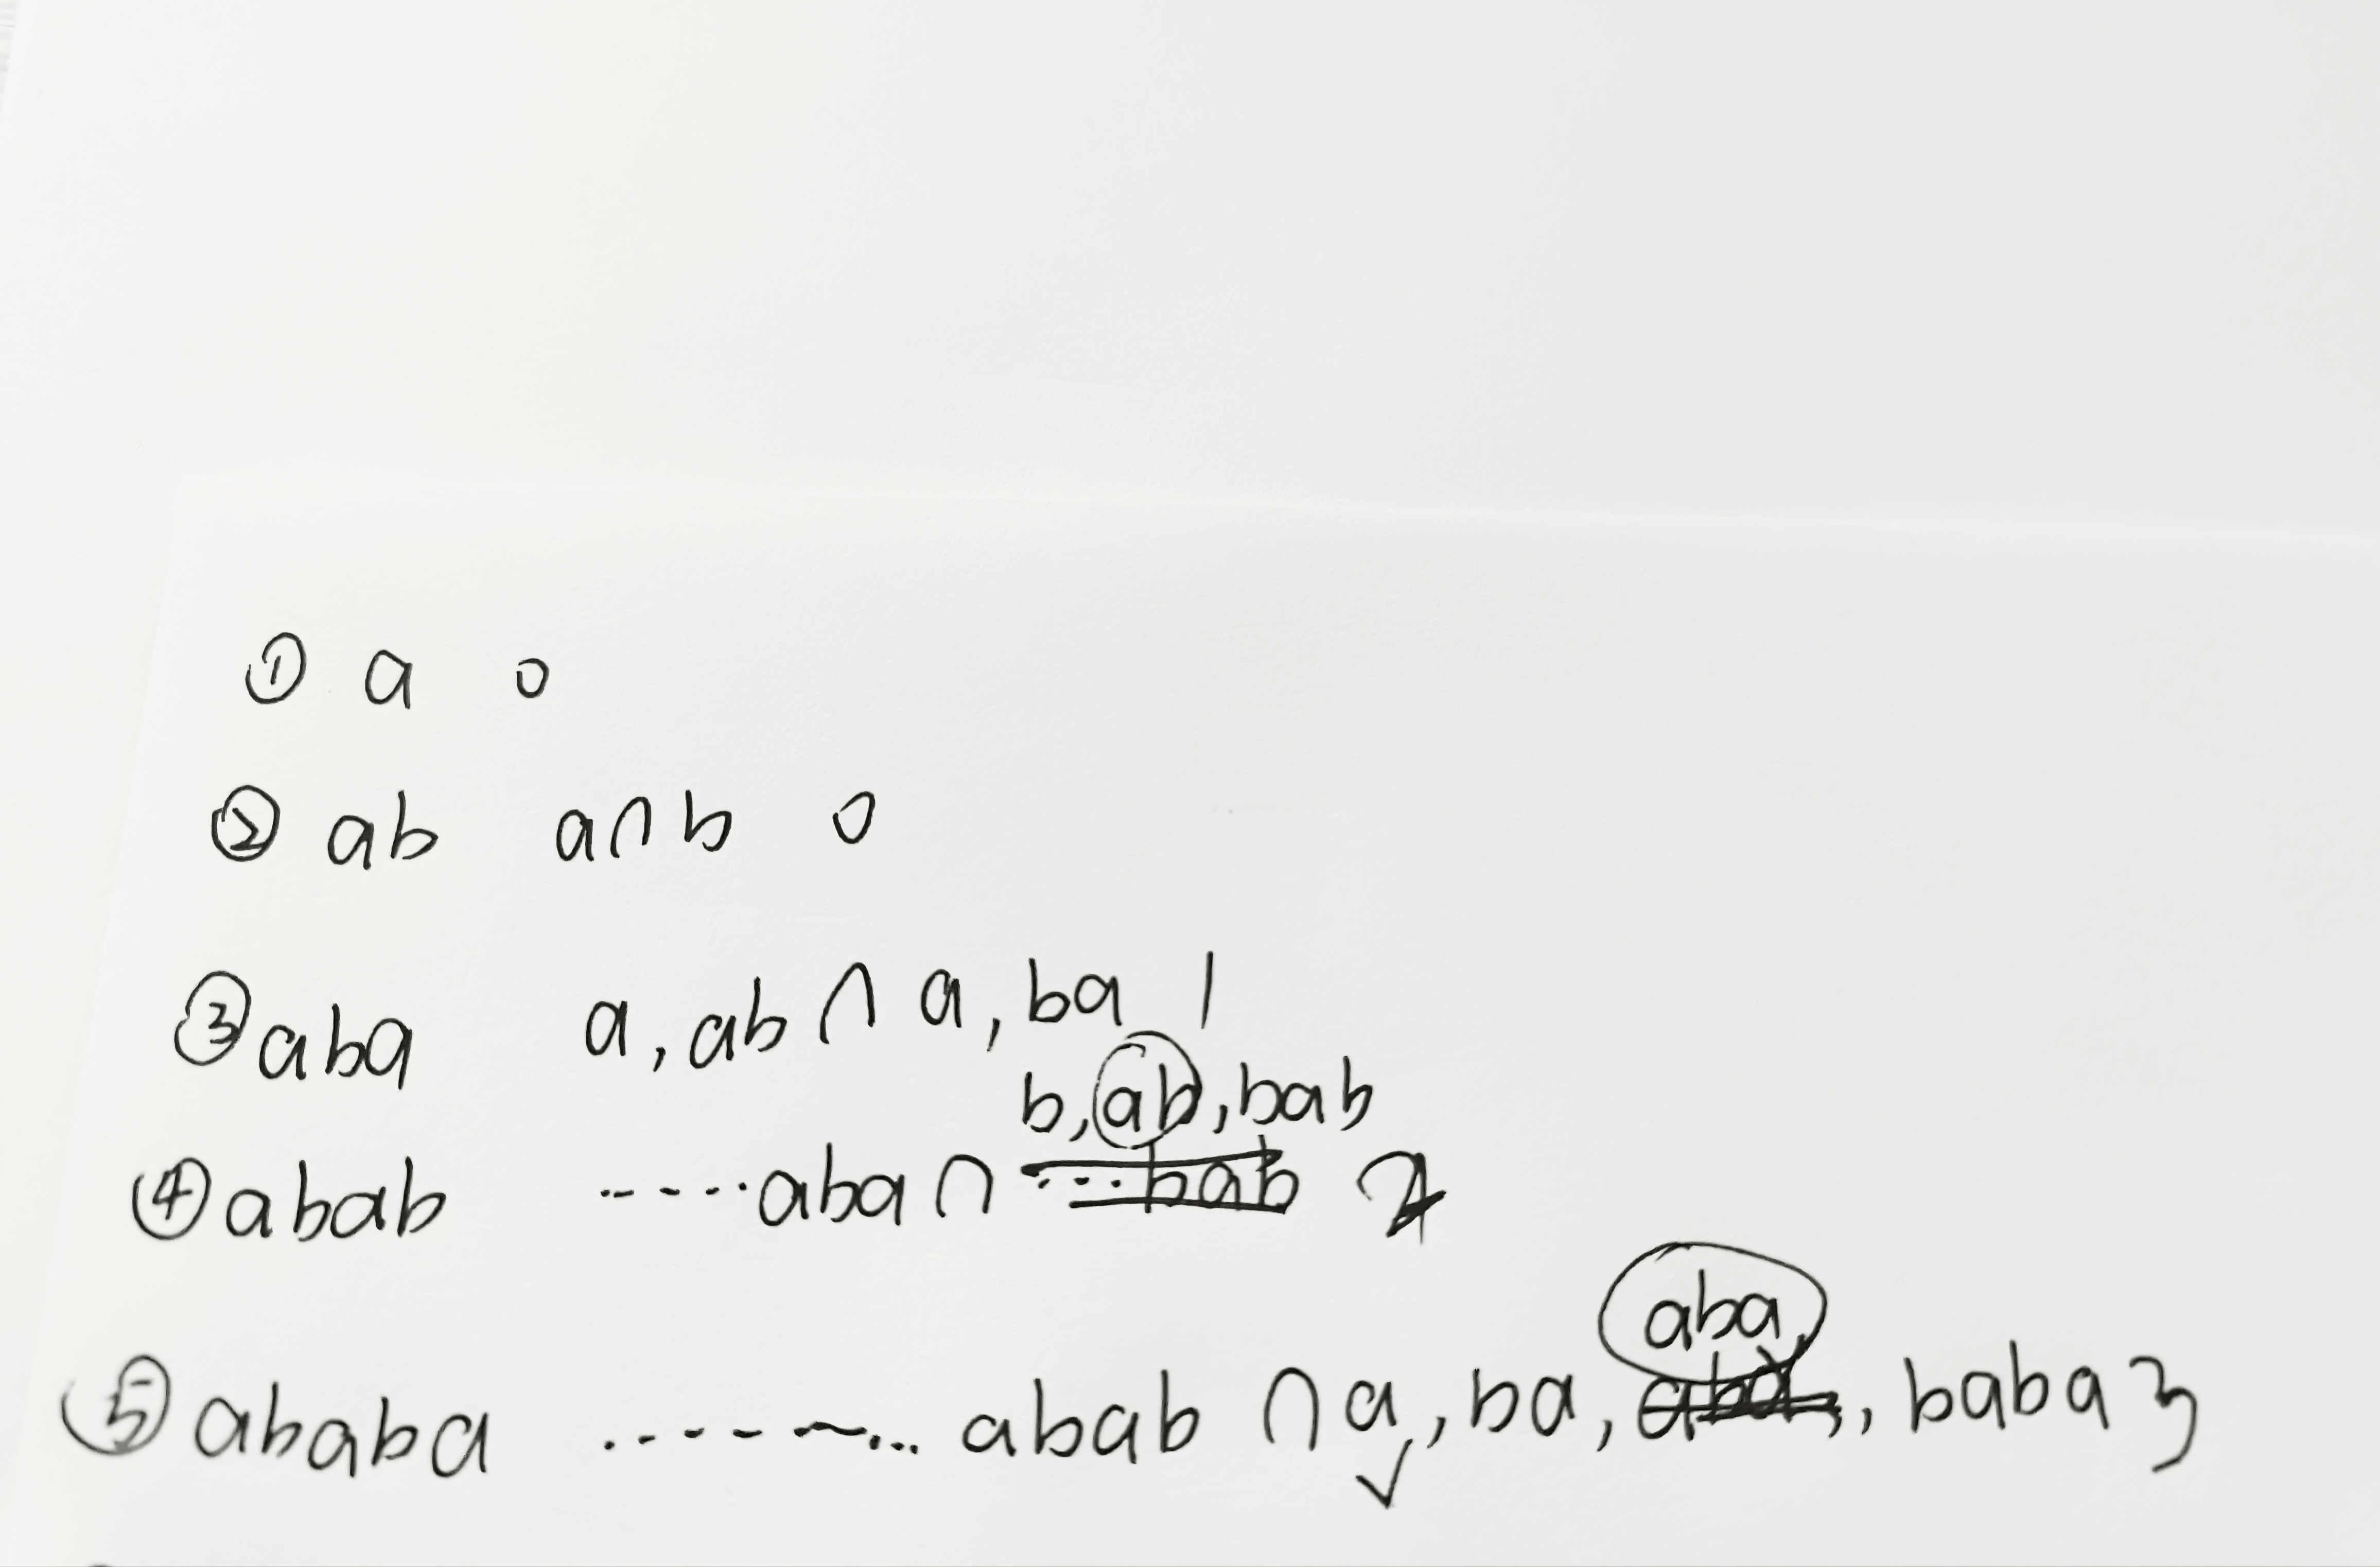 ① a 0
② ab a∩b 0
③ aba a, ab ∩ a, ba 1
b, ab, bab
④ abab -----aba ∩ 2
aba,
⑤ ababa ........ abab ∩ a, ba, , baba 3
✓